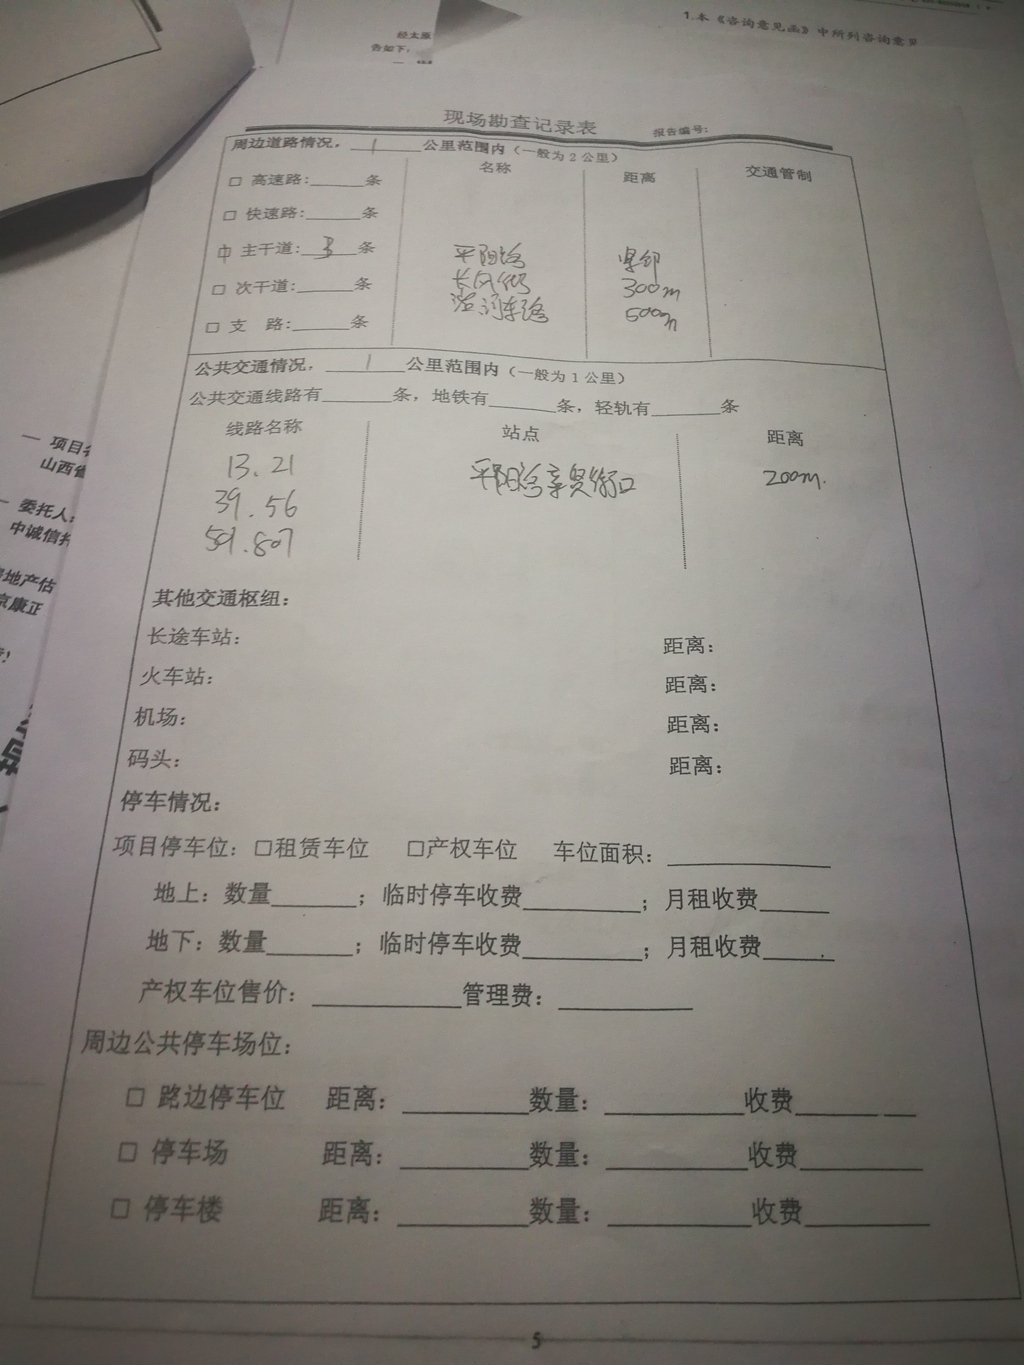 1.本《咨询意见函》中所列咨询意见
经太原
告如下，
现场勘查记录表 报告编号：
周边道路情况，1公里范围内（一般为2公里）
名称 距离 交通管制
□ 高速路：______条
□ 快速路：______条
主干道：3条 平阳路 紧邻
长风街 300m
□ 次干道：______条
500m
□ 支 路：______条
公共交通情况，1公里范围内（一般为1公里）
公共交通线路有______条，地铁有______条，轻轨有______条
线路名称 站点 距离
13、21 平阳路亲贤街口 200m.
39、56
501、807
其他交通枢纽：
长途车站： 距离：
火车站： 距离：
机场： 距离：
码头： 距离：
停车情况：
项目停车位：□租赁车位 □产权车位 车位面积：____________
地上：数量______；临时停车收费________；月租收费_____
地下：数量______；临时停车收费________；月租收费_____
产权车位售价：__________管理费：_________
周边公共停车场位：
□ 路边停车位 距离：________数量：_________收费________
□ 停车场 距离：________数量：_________收费________
□ 停车楼 距离：________数量：_________收费________
5
一 项目名
山西省
委托人：
中诚信托
地产估
京康正